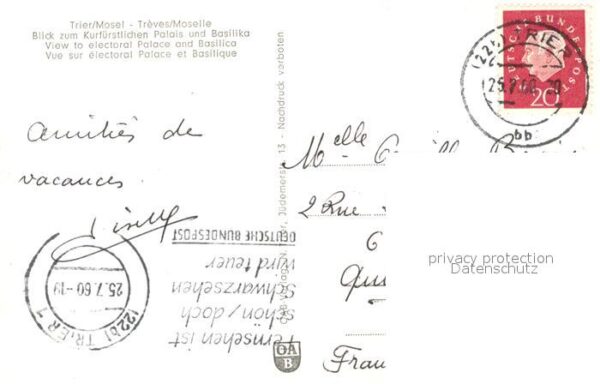 Trier/Mosel - Trèves/Moselle
Blick zum Kurfürstlichen Palais und Basilika
View to electoral Palace and Basilica
Vue sur électoral Palace et Basilique
DEUTSCHE BUNDESPOST
20
(22b) TRIER
25.7.60
bb
amitiés de
vacances
Melle
2 Rue
6
Fran
13 - Nachdruck verboten
Fernsehen ist
schön/doch
Schwarzsehen
wird teuer
DEUTSCHE BUNDESPOST
(22b) TRIER 1
25.7.60-19
privacy protection
Datenschutz